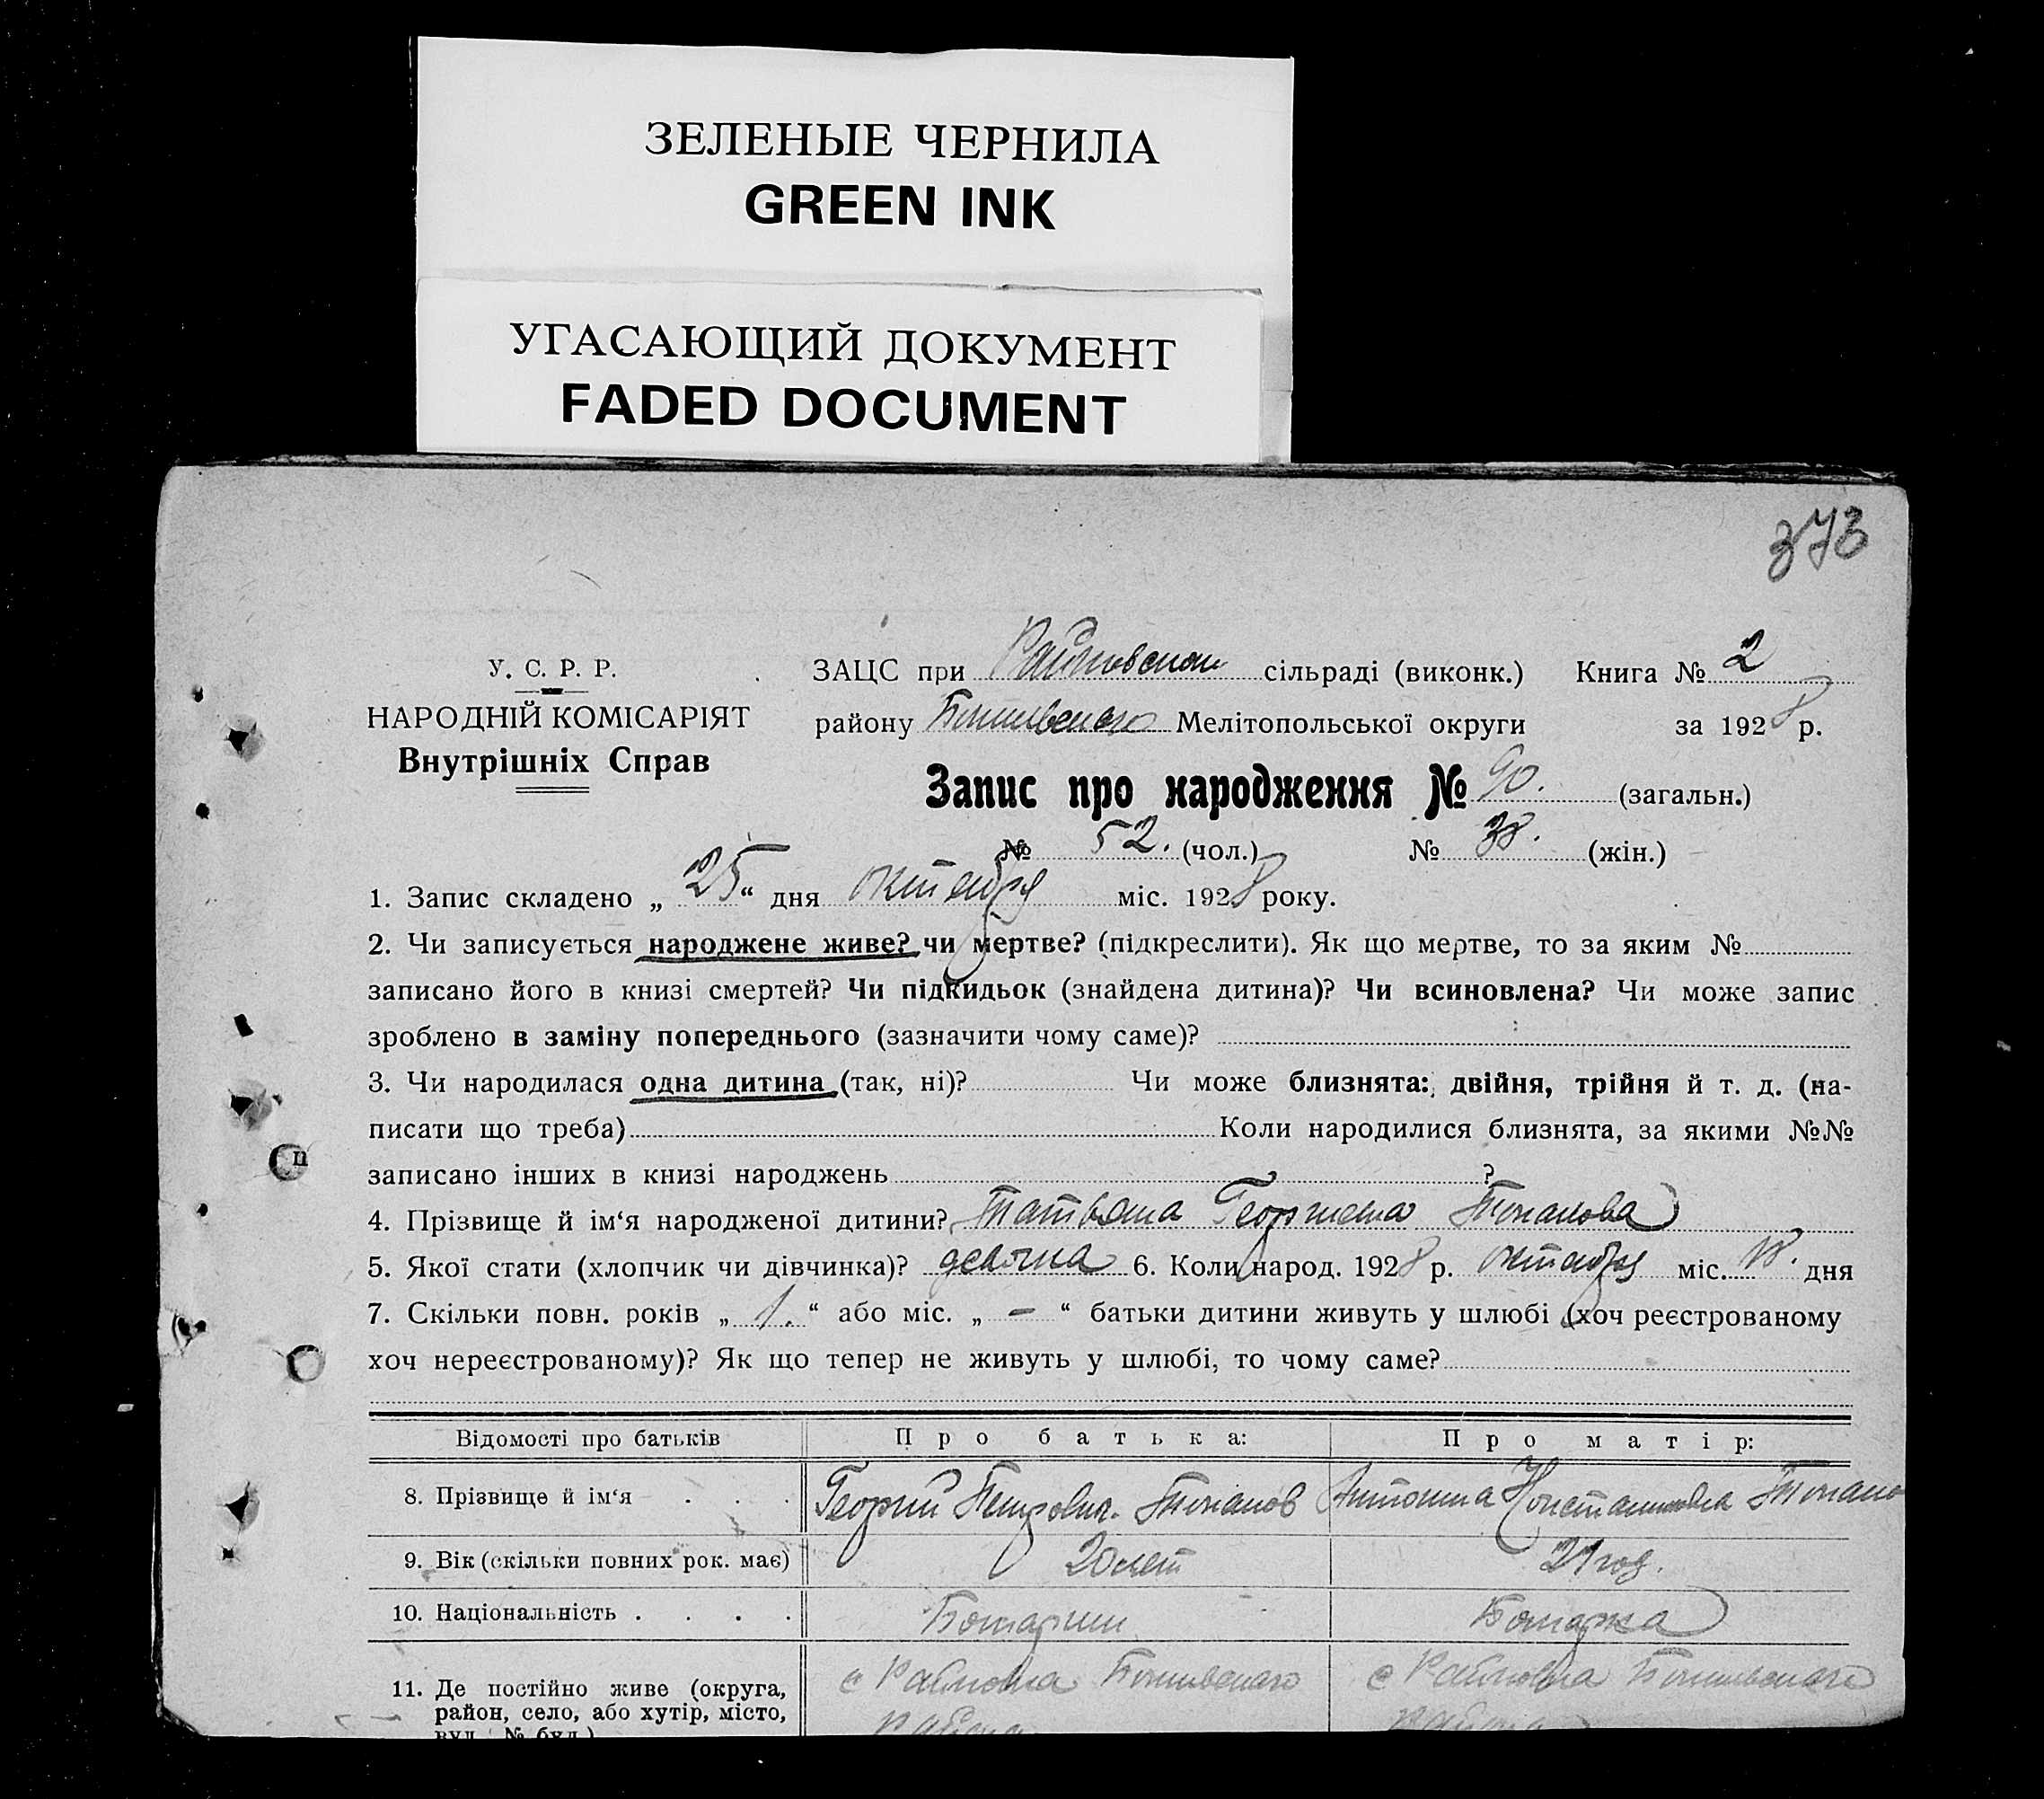 ЗЕЛЕНЫЕ ЧЕРНИЛА
GREEN INK
УГАСАЮЩИЙ ДОКУМЕНТ
FADED DOCUMENT
373
У. С. Р. Р.
НАРОДНІЙ КОМІСАРІЯТ
Внутрішніх Справ
ЗАЦС при сільраді (виконк.) Книга № 2
району Мелітопольської округи за 1928 р.
Запис про народження № 90. (загальн.)
№ 52. (чол.) № 38. (жін.)
1. Запис складено „ 25 “ дня октября міс. 1928 року.
2. Чи записується народжене живе? чи мертве? (підкреслити). Як що мертве, то за яким №
записано його в книзі смертей? Чи підкидьок (знайдена дитина)? Чи всиновлена? Чи може запис
зроблено в заміну попереднього (зазначити чому саме)?
3. Чи народилася одна дитина (так, ні)? Чи може близнята: двійня, трійня й т. д. (на-
писати що треба) Коли народилися близнята, за якими №№
записано інших в книзі народжень ?
4. Прізвище й ім‘я народженої дитини? Татьяна
5. Якої стати (хлопчик чи дівчинка)? девочка 6. Коли народ. 1928 р. октября міс. дня
7. Скільки повн. років „ 1. “ або міс. „ — “ батьки дитини живуть у шлюбі (хоч реєстрованому
хоч нереєстрованому)? Як що тепер не живуть у шлюбі, то чому саме?
Відомості про батьків Про батька: Про матір:
8. Прізвище й ім‘я . . . Георгий Петрович.
9. Вік (скільки повних рок. має) 20 лет 21 год.
10. Національність . . . .
11. Де постійно живе (округа,
район, село, або хутір, місто,
вул., № буд.)